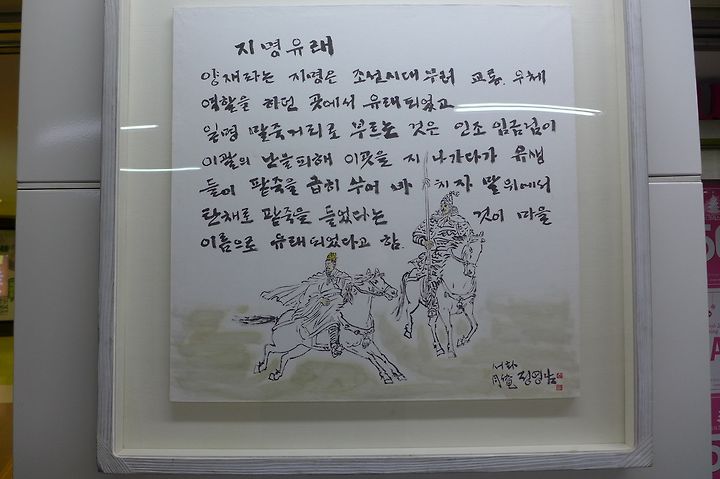 지명유래
양재라는 지명은 조선시대 부터 교통, 우체
역할을 하던 곳에서 유래되었고
일명 말죽거리로 부르는 것은 인조 임금님이
이괄의 난을피해 이곳을 지나가다가 유생
들이 팥죽을 급히 쑤어 바치자 말위에서
탄채로 팥죽을 들었다는 것이 마을
이름으로 유래되었다고 함.
서화
정영남